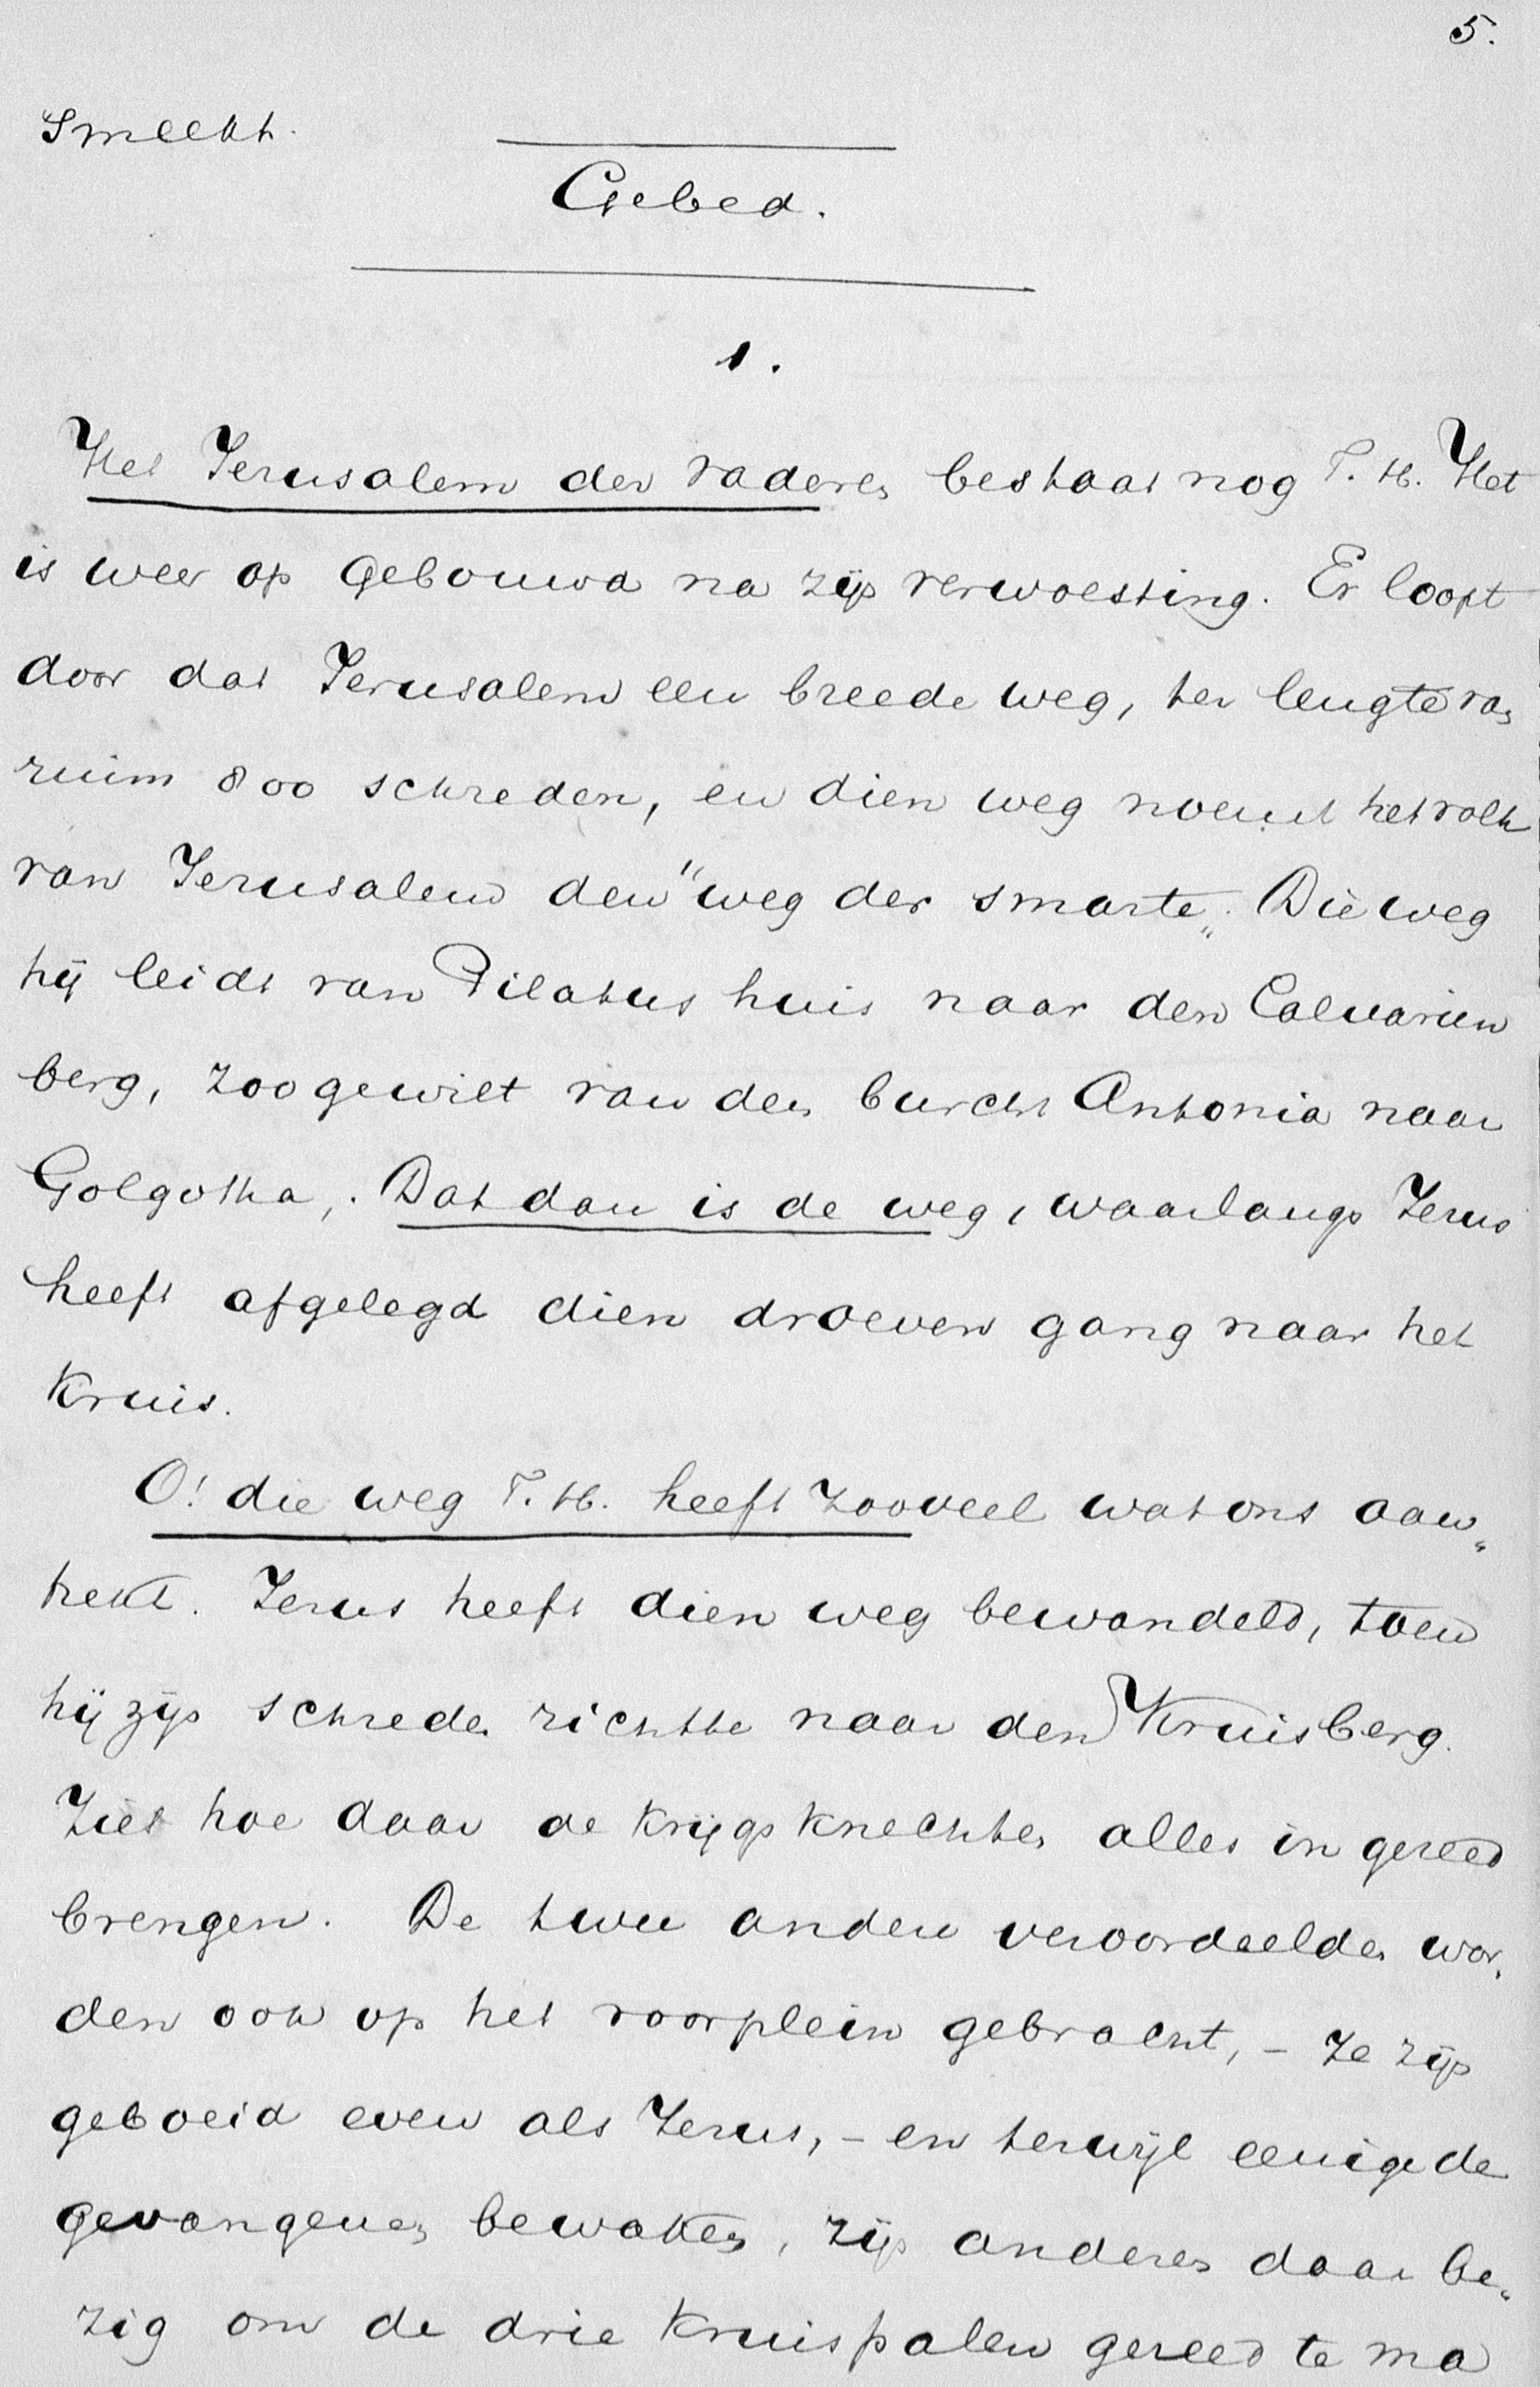 5.
Smeekt.
Gebed.
1.
Het Jerusalem der vaderen bestaat nog T. H. Het
is weer op gebouwd na zijn verwoesting. Er loopt
door dat Jerusalem een breede weg, ter lengte van
ruim 800 schreden, en dien weg noemt het volk
van Jerusalem den "weg der smarte„. Die weg
hij leidt van Pilatus huis naar den Calvariën
berg, zoo gewilt van den burcht Antonia naar
Golgotha,. Dat dan is de weg, waarlangs Jezus
heeft afgelegd dien droeven gang naar het
Kruis.
O! die weg T. H. heeft zooveel wat ons aan„
trekt. Jezus heeft dien weg bewandeld, toen
hij zijn schreden richtte naar den Kruisberg.
Ziet hoe daar de krijgsknechten alles in gereed
brengen. De twee andere veroordeelden wor„
den ook op het voorplein gebracht, – ze zijn
geboeid even als Jezus, – en terwijl eenige de
gevangenen bewaken, zijn anderen daar be„
zig om de drie kruispalen gereed te ma